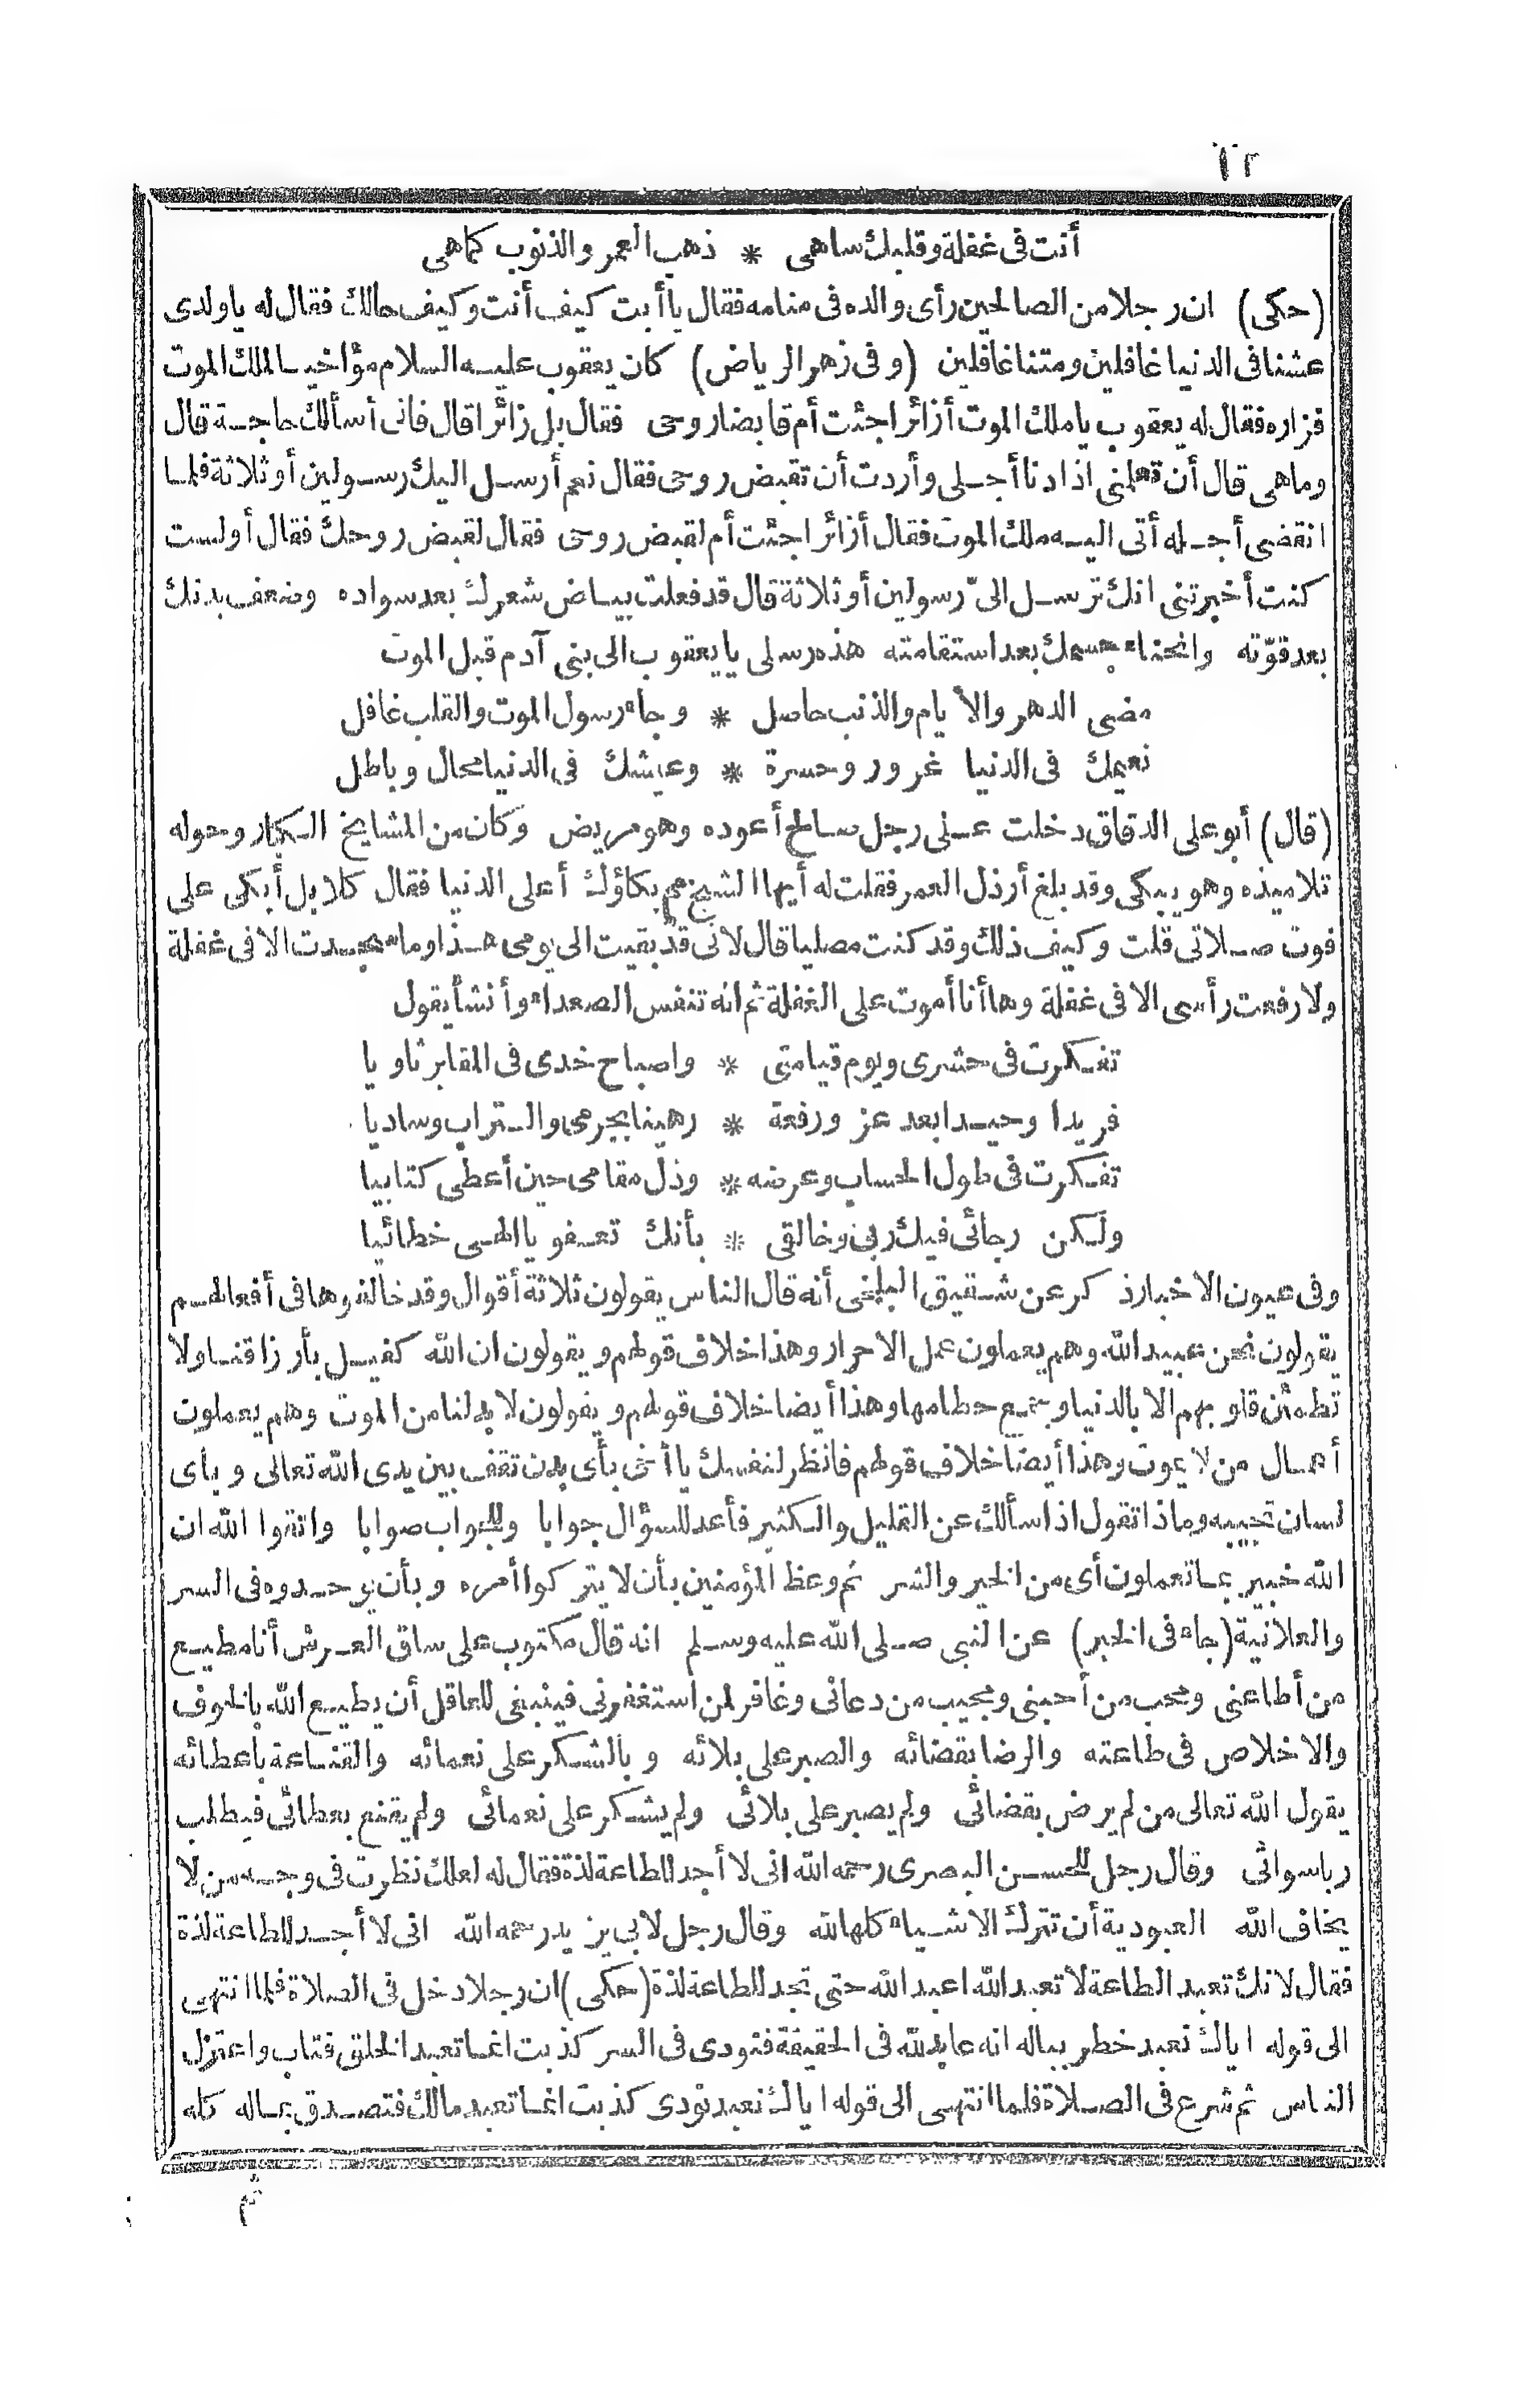 ١٢
أنت فى غفلة وقلبك ساهى * ذهب العمر والذنوب كماهى
(حكى) ان رجلا من الصالحين رأى والده فى منامه فقال يا أبت كيف أنت وكيف حالك فقال له يا ولدى
عشنا فى الدنيا غافلين ومتنا غافلين (وفى زهر الرياض) كان يعقوب عليه السلام مؤاخيا لملك الموت
فزاره فقال له يعقوب يا ملك الموت أزائرا جئت أم قابضا روحى فقال بل زائرا قال فانى أسألك حاجة قال
وماهى قال أن تعلمنى اذا دنا أجلى وأردت أن تقبض روحى فقال نعم أرسل اليك رسولين أو ثلاثة فلما
انقضى أجله أتى اليه ملك الموت فقال أزائرا جئت أم لقبض روحى فقال لقبض روحك فقال أولست
كنت أخبرتنى انك ترسل الىّ رسولين أو ثلاثة قال قد فعلت بياض شعرك بعد سواده وضعف بدنك
بعد قوّته وانحناء جسمك بعد استقامته هذه رسلى يا يعقوب الى بنى آدم قبل الموت
مضى الدهر والأيام والذنب حاصل * وجاء رسول الموت والقلب غافل
نعيمك فى الدنيا غرور وحسرة * وعيشك فى الدنيا محال وباطل
(قال) أبو على الدقاق دخلت على رجل صالح أعوده وهو مريض وكان من المشايخ الكبار وحوله
تلاميذه وهو يبكى وقد بلغ أرذل العمر فقلت له أيها الشيخ مم بكاؤك أعلى الدنيا فقال كلا بل أبكى على
فوت صلاتى قلت وكيف ذلك وقد كنت مصليا قال لانى قد بقيت الى يومى هذا وما سجدت الا فى غفلة
ولا رفعت رأسى الا فى غفلة وها أنا أموت على الغفلة ثم انه تنفس الصعداء وأنشأ يقول
تفكرت فى حشرى ويوم قيامتى * واصباح خدى فى المقابر ثاويا
فريدا وحيدا بعد عز ورفعة * رهينا بجرمى والتراب وساديا
تفكرت فى طول الحساب وعرضه * وذل مقامى حين أعطى كتابيا
ولكن رجائى فيك ربى وخالقى * بأنك تعفو يا الهى خطائيا
وفى عيون الاخبار ذكر عن شقيق البلخى أنه قال الناس يقولون ثلاثة أقوال وقد خالفوها فى أفعالهم
يقولون نحن عبيد الله وهم يعملون عمل الاحرار وهذا خلاف قولهم ويقولون ان الله كفيل بأرزاقنا ولا
تطمئن قلوبهم الا بالدنيا وجميع حطامها وهذا أيضا خلاف قولهم ويقولون لا بد لنا من الموت وهم يعملون
أعمال من لا يموت وهذا أيضا خلاف قولهم فانظر لنفسك يا أخى بأى بدن تقف بين يدى الله تعالى وبأى
لسان تجيبه وماذا تقول اذا سألك عن القليل والكثير فأعد للسؤال جوابا وللجواب صوابا واتقوا الله ان
الله خبير بما تعملون أى من الخير والشر ثم وعظ المؤمنين بأن لا يتركوا أمره وبأن يوحدوه فى السر
والعلانية (جاء فى الخبر) عن النبى صلى الله عليه وسلم انه قال مكتوب على ساق العرش أنا مطيع
من أطاعنى ومحب من أحبنى ومجيب من دعانى وغافر لمن استغفرنى فينبغى للعاقل أن يطيع الله بالخوف
والاخلاص فى طاعته والرضا بقضائه والصبر على بلائه وبالشكر على نعمائه والقناعة باعطائه
يقول الله تعالى من لم يرض بقضائى ولم يصبر على بلائى ولم يشكر على نعمائى ولم يقنع بعطائى فيطلب
ربا سوائى وقال رجل للحسن البصرى رحمه الله انى لا أجد للطاعة لذة فقال له لعلك نظرت فى وجه من لا
يخاف الله العبودية أن تترك الاشياء كلها لله وقال رجل لابى يزيد رحمه الله انى لا أجد للطاعة لذة
فقال لانك تعبد الطاعة لا تعبد الله اعبد الله حتى تجد للطاعة لذة (حكى) ان رجلا دخل فى الصلاة فلما انتهى
الى قوله اياك نعبد خطر بباله انه عابد لله فى الحقيقة فنودى فى السر كذبت انما تعبد الخلق فتاب واعتزل
الناس ثم شرع فى الصلاة فلما انتهى الى قوله اياك نعبد نودى كذبت انما تعبد مالك فتصدق بماله كله
ثم